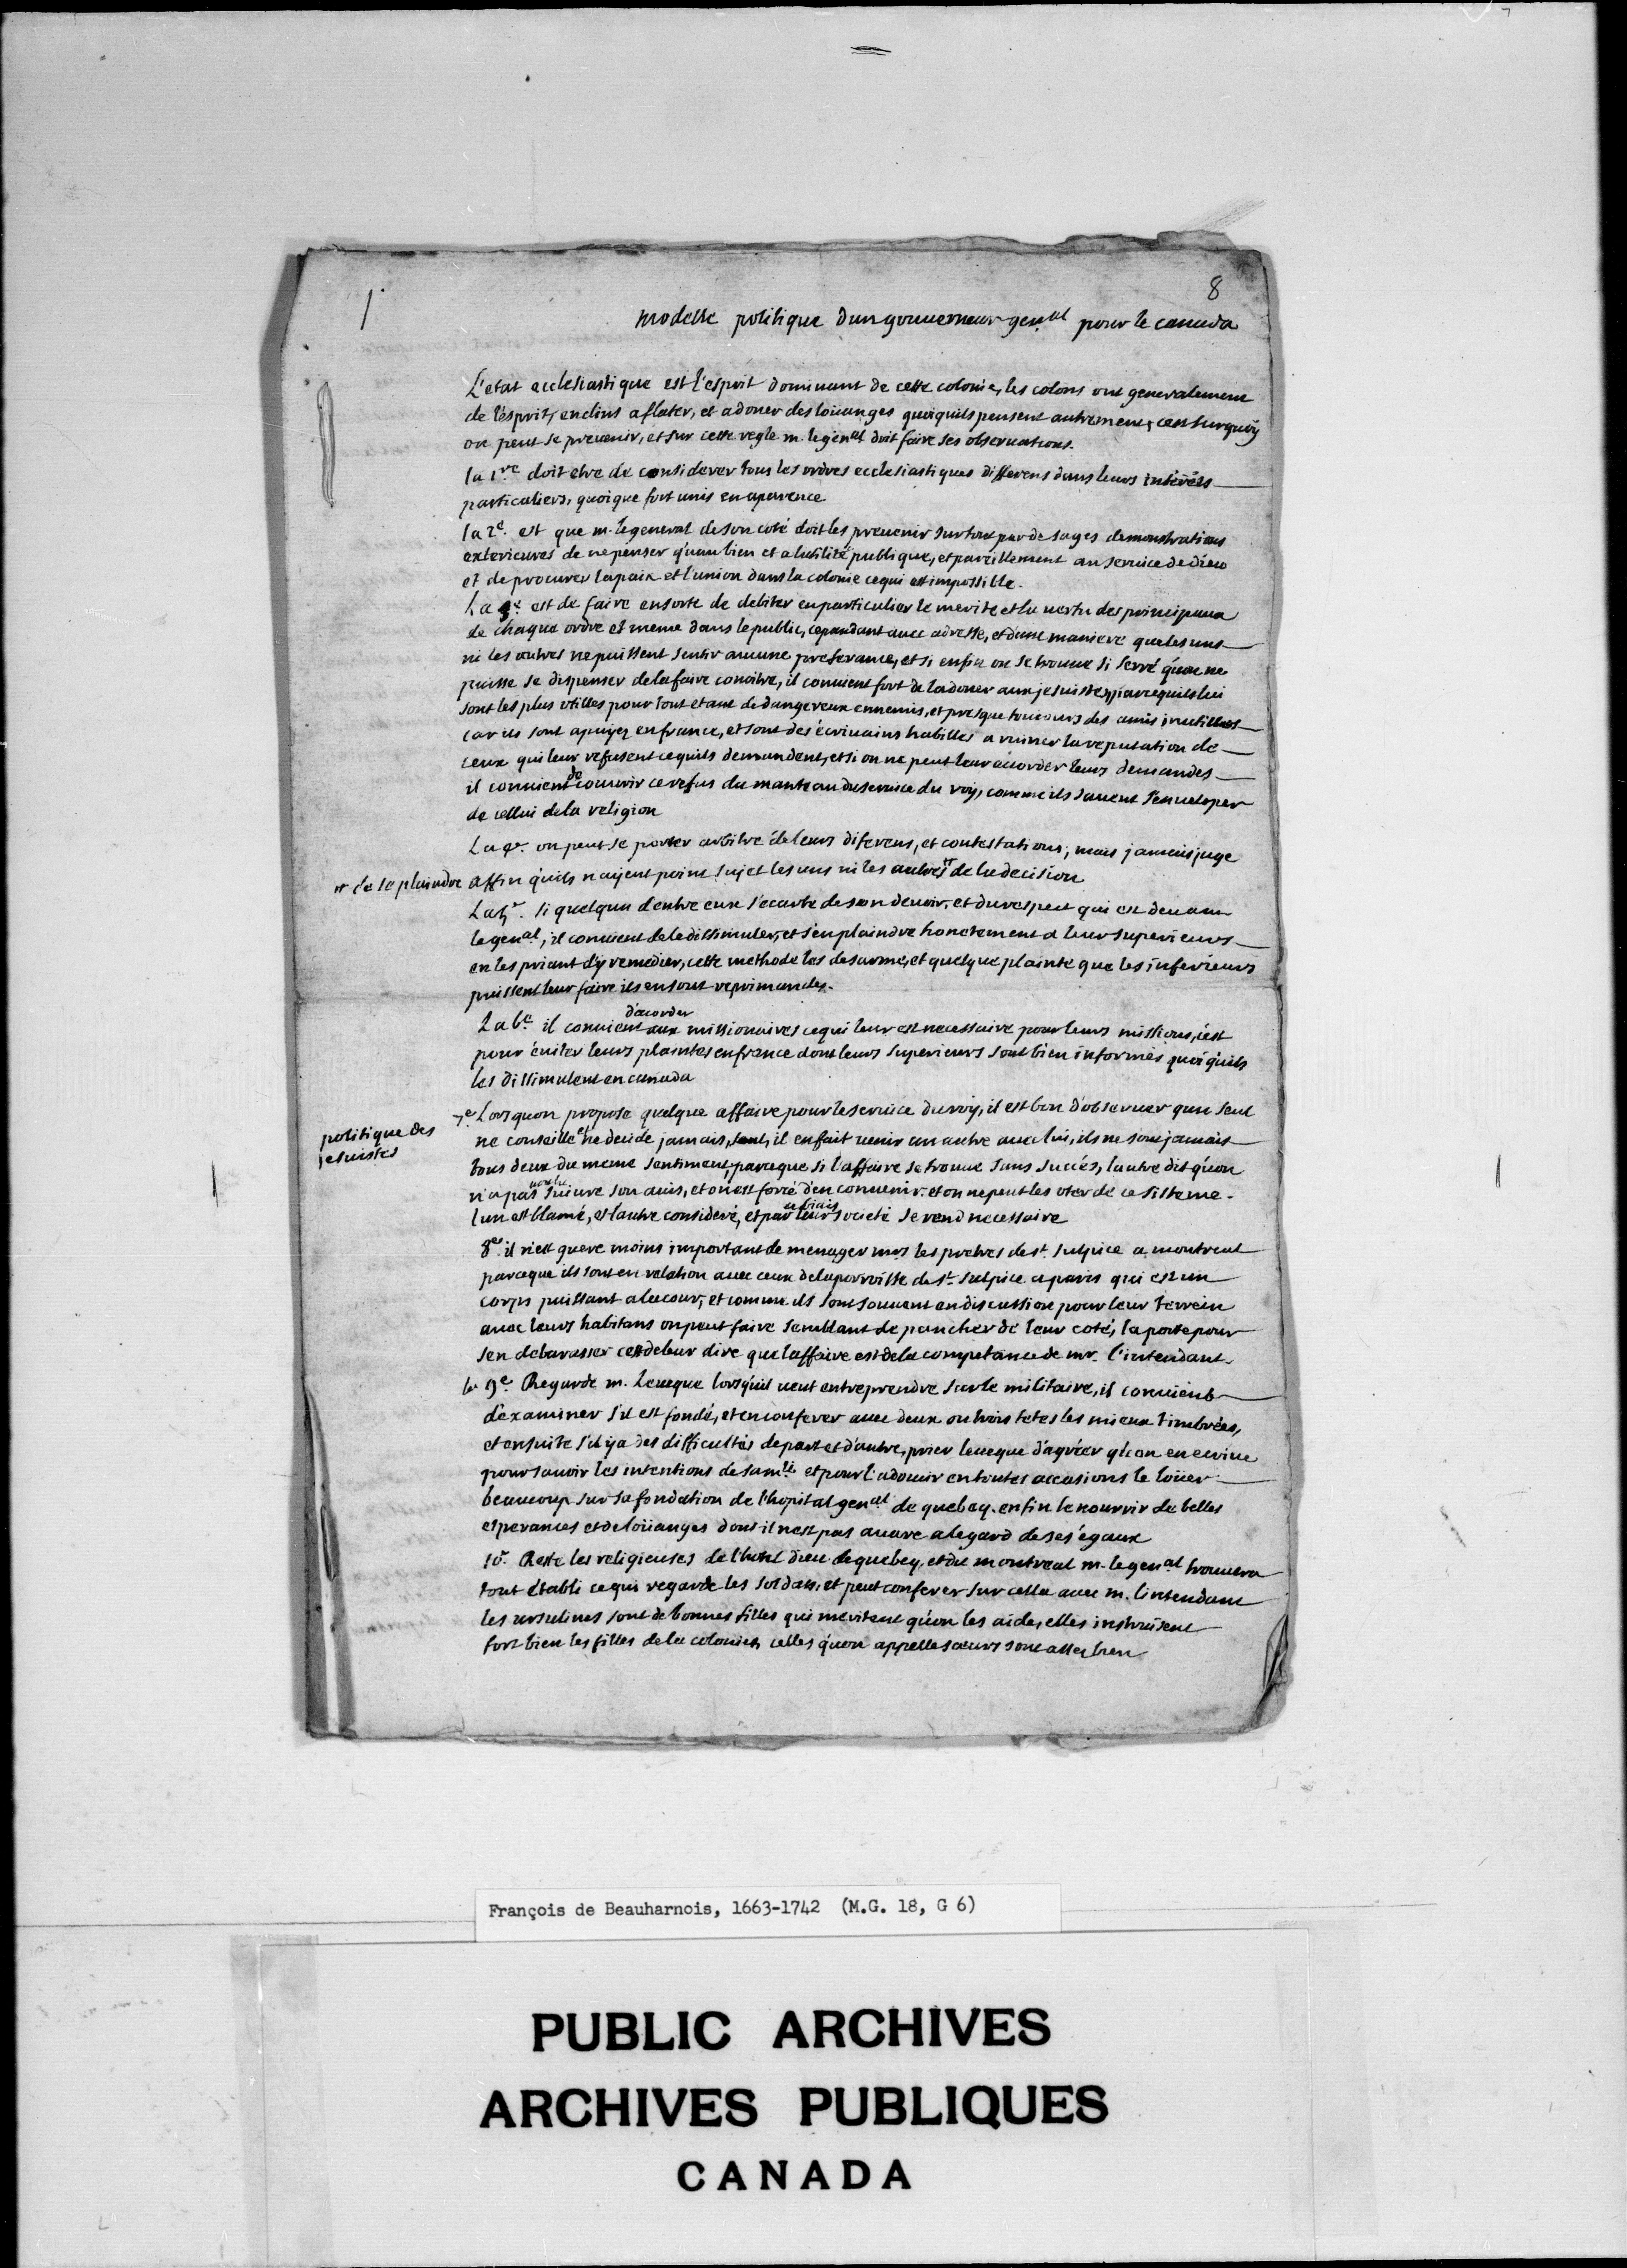 1
8
modelle politique dun gouverneur gen.al pour le canada
L'etat ecclesiastique est l'esprit dominant de cette colonie, les colons ont generalement
de l'esprit, enclins a flater, et a doner des loüanges quoiquils pensent autrement, cest surquoÿ
on peut se prevenir, et sur cette regle m. le gen.al doit faire ses observations.
la 1.re doit etre de considerer tous les ordres ecclesiastiques differens dans leurs intérêts
particuliers, quoique fort unis en aparence
la 2.e est que m. le general de son coté doit les prevenir surtout par de sages demonstrations
exterieures de ne penser qu'au bien et a lutilité publique, et pareillement au service de dieu
et de procurer la paix et l'union dans la colonie ce qui est impossible.
La 3.e est de faire ensorte de debiter en particulier le merite et la vertu des principaux
de chaque ordre et meme dans le public, cependant avec adresse, et dune maniere que les uns
ni les autres ne puissent sentir aucune preferance, et si enfin on se trouve si serré qu'on ne
puisse se dispenser de la faire conoitre, il convient fort de la doner aux jesuistes, parcequils lui
sont les plus utilles pour tout etant de dangereux ennemis, et presque toujours des amis inutilles
car ils sont apuyez en france, et sont des écrivains habilles a ruiner la reputation de
ceux qui leur refusent ce quils demandent, et si on ne peut leur acorder leurs demandes
il convient de couvrir ce refus du manteau du service du roy, comme ils savent s'enveloper
de cellui de la religion
La 4.e on peut se porter arbitre de leurs diferens, et contestations, mais jamais juge
# de se plaindre
affin quils n'ayent point sujet les uns ni les autres # de la decision
La 5.e si quelqun dentre eux s'ecarte de son devoir, et du respect qui est deu a m
le gen.al, il convient de le dissimuler, et s'en plaindre honetement a leurs superieurs
en les priant d'ÿ remedier, cette methode les desarme, et quelque plainte que les inferieurs
puissent leur faire ils en sont reprimandes.
La 6.e il convient d'acorder aux missionaires ce qui leur est necessaire pour leurs missions, c'est
pour éviter leurs plaintes en france dont leurs superieurs sont bien informés quoiquils
les dissimulent en canada
politique des
jesuistes
7.e Lors quon propose quelque affaire pour le service du roy, il est bon d'observer qun seul
ne conseille et ne decide jamais, il en fait venir un autre avec lui, ils ne sont jamais
tous deux du meme sentiment, parceque si l'affaire se trouve sans succés, lautre dit qu'on
n'a pas voulu suivre son avis, et on est forcé d'en convenir. et on ne peut les oter de ce sisteme.
lun est blamé, et lautre consideré, et par ce biais leur societé se rend necessaire
8.e il n'est guere moins important de menager mrs les pretres de st. sulpice a montreal
parceque ils sont en relation avec ceux de la parroisse de st. sulpice a paris qui est un
corps puissant a la cour, et comme ils sont souvent en discussion pour leur terrein
avec leurs habitans on peut faire semblant de pancher de leur coté, la porte pour
sen debarasser cest de leur dire que laffaire est de la competance de mr. l'intendant.
la 9.e Regarde m. Leveque lorsquil veut entreprendre sur le militaire, il convient
d'examiner s'il est fondé, et en conferer avec deux ou trois tetes les mieux timbrées,
et ensuite s'il y a des difficultés de part et d'autre, prier leveque d'agréer qu'on en ecrive
pour savoir les intentions de sa m.té et pour l'adoucir en toutes occasions le loüer
beaucoup sur sa fondation de l'hopital gen.al de quebeq. enfin le nourrir de belles
esperances et de loüanges dont il n'est pas avare a legard de ses égaux
10.e Reste les religieuses de l'hotel dieu de quebeq, et du montreal m. le gen.al trouvera
tout établi ce qui regarde les soldats, et peut conferer sur cella avec m. l'intendant
les ursulines sont de bonnes filles qui meritent qu'on les aide, elles instruisent
fort bien les filles de la colonie, celles qu'on appelle soeurs sont assez bien
François de Beauharnois, 1663-1742 (M.G. 18, G 6)
PUBLIC ARCHIVES
ARCHIVES PUBLIQUES
CANADA